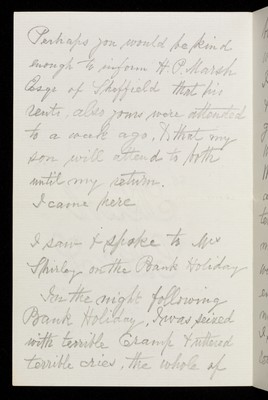 Perhaps you would be kind
enough to inform H. P. Marsh
Esqr of Sheffield that his
rents, also yours were attended
to a week ago, & that my
son will attend to both
until my return.
I came here
I saw & spoke to Mr
Shirley on the Bank Holiday
In the night following
Bank Holiday, I was seized
with terrible Cramp & uttered
terrible cries, the whole of